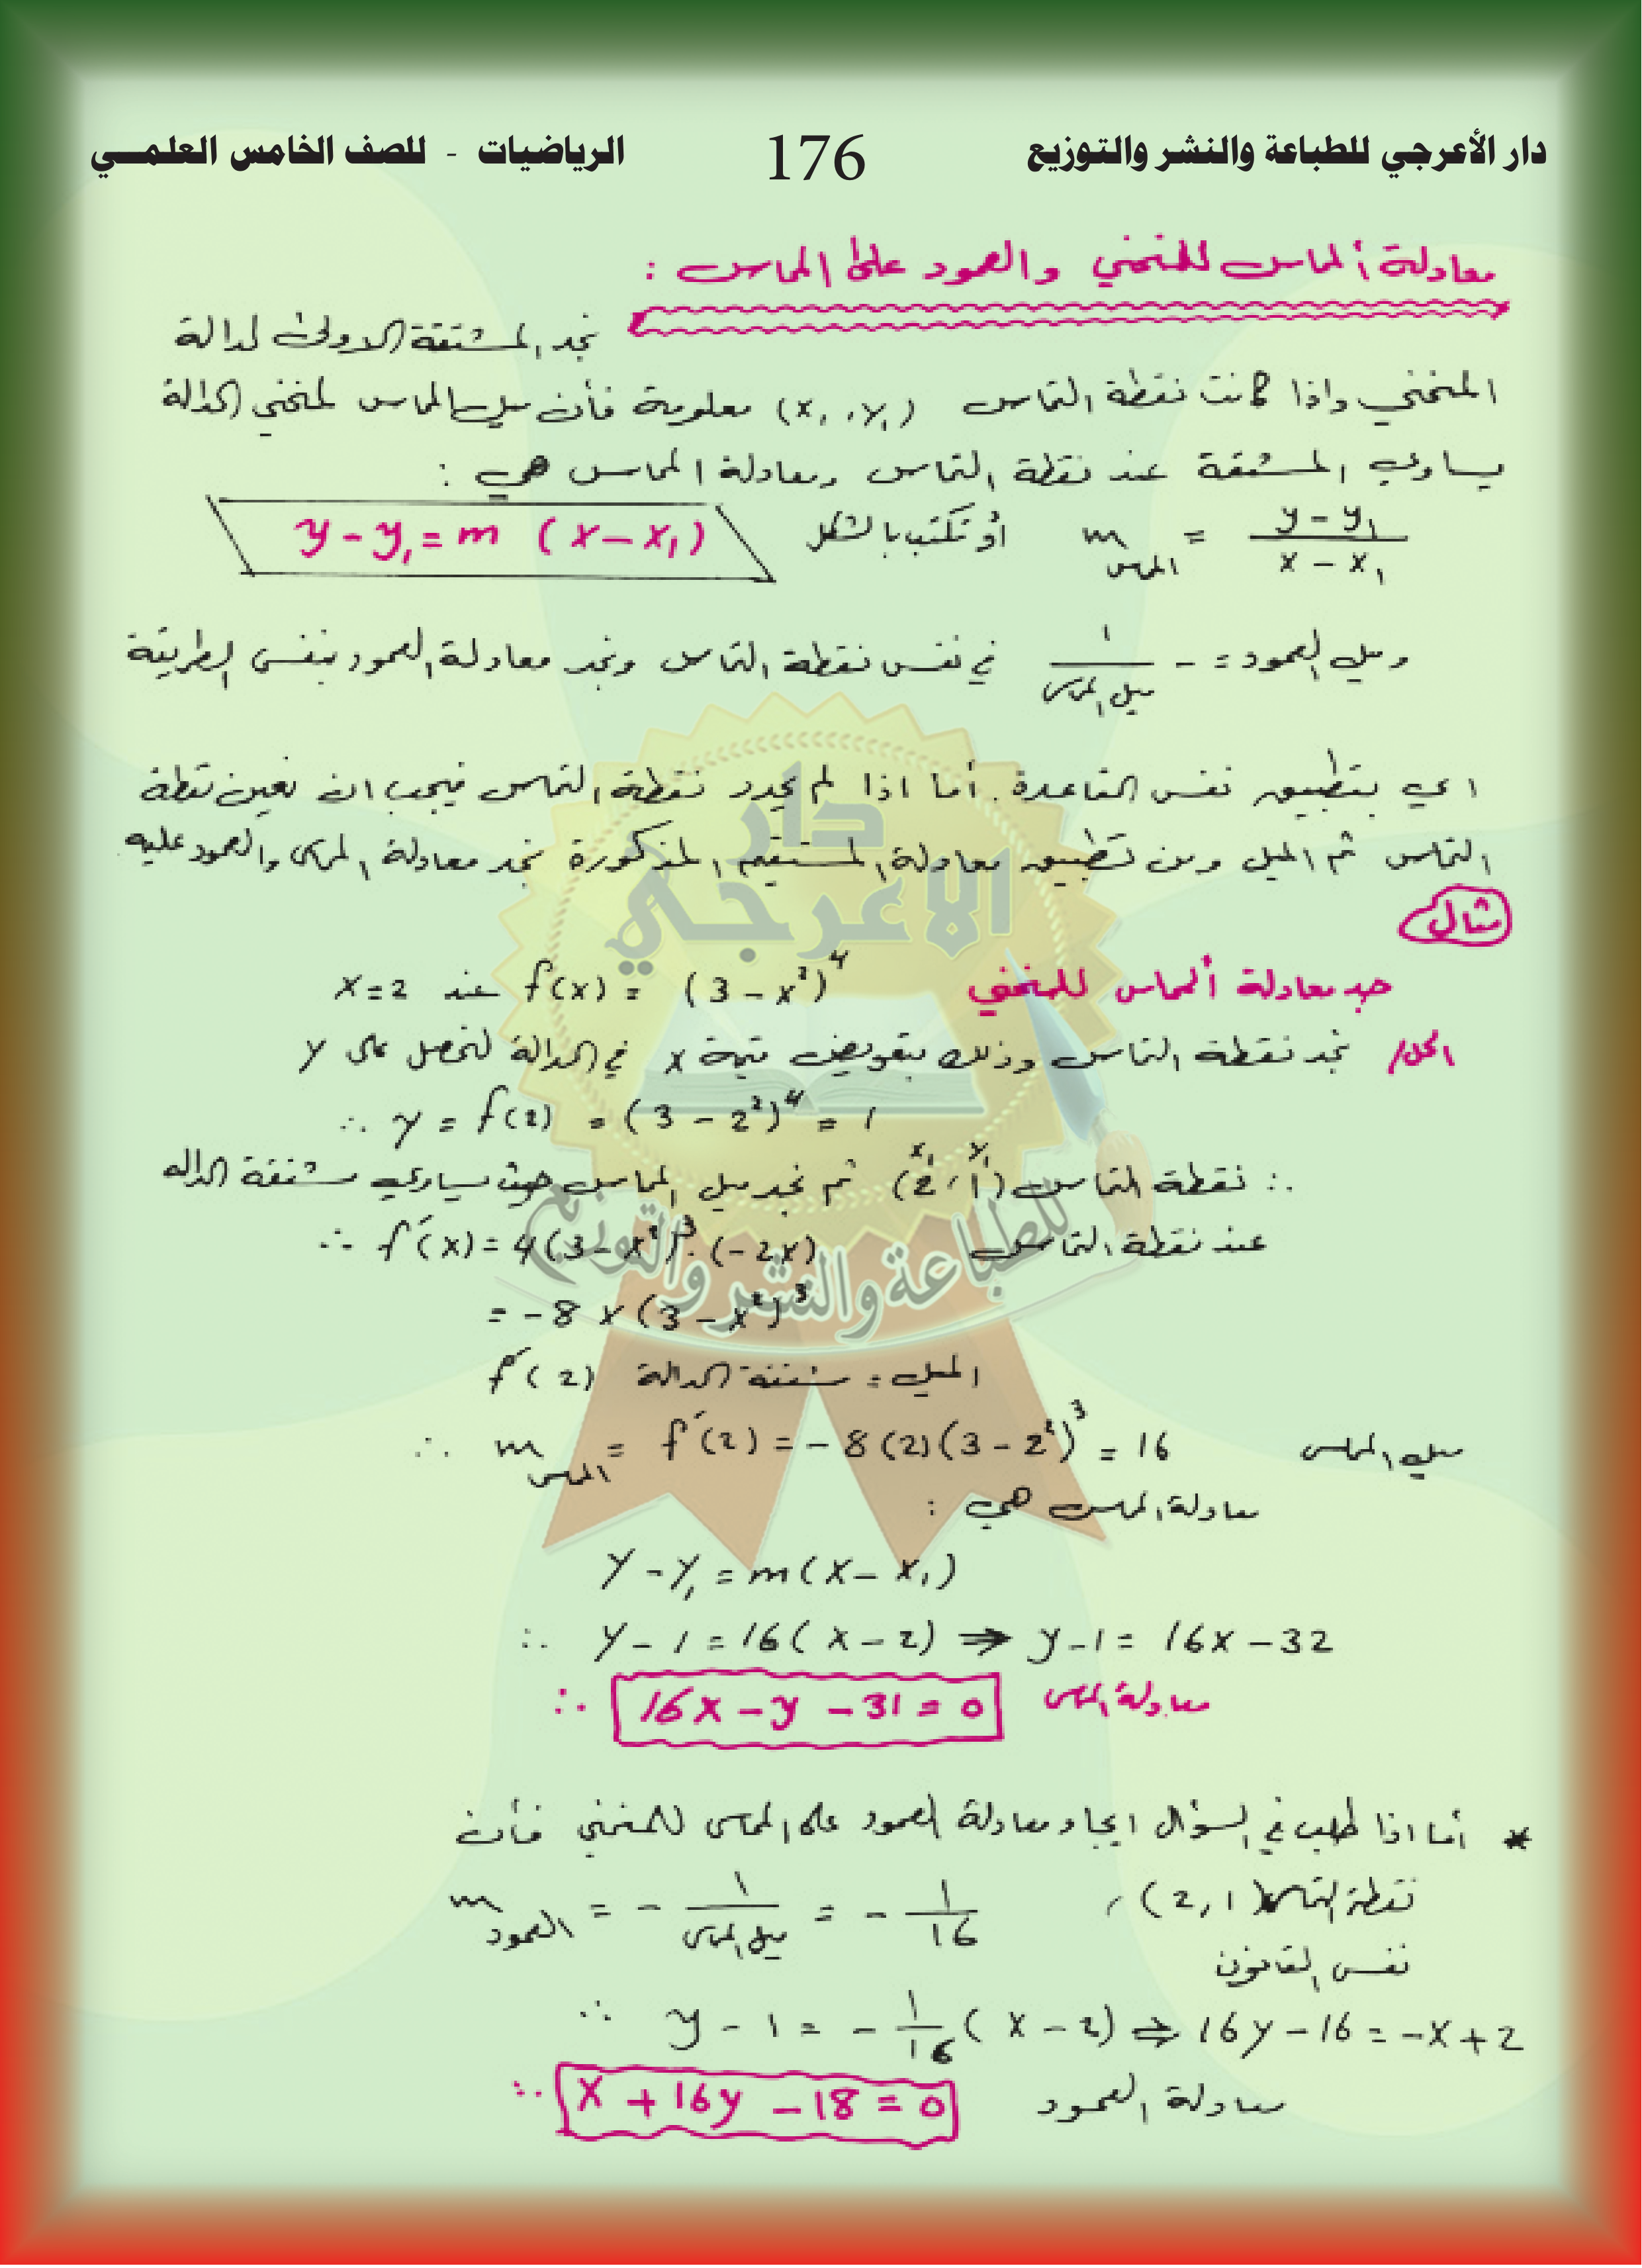 دار الأعرجي للطباعة والنشر والتوزيع 176 الرياضيات - للصف الخامس العلمي
معادلة المماس للمنحني والعمود على المماس :
نجد المشتقة الاولى لدالة
المنحني واذا كانت نقطة التماس (x₁, y₁) معلومة فأن ميل المماس لمنحني الدالة
يساوي المشتقة عند نقطة التماس ومعادلة المماس هي :
m المماس = (y - y₁)/(x - x₁) أو تكتب بالشكل y - y₁ = m (x - x₁)
وميل العمود = - 1/ميل المماس في نفس نقطة التماس ونجد معادلة العمود بنفس الطريقة
اي بتطبيق نفس القاعدة. أما اذا لم يحدد نقطة التماس فيجب ان نعين نقطة
التماس ثم الميل ومن تطبيق معادلة المستقيم المذكورة نجد معادلة المماس والعمود عليه.
مثال
جد معادلة المماس للمنحني f(x) = (3 - x²)⁴ عند x=2
الحل/ نجد نقطة التماس وذلك بتعويض قيمة x في الدالة لنحصل على y
∴ y = f(2) = (3 - 2²)⁴ = 1
∴ نقطة التماس (2, 1) x₁ y₁ ثم نجد ميل المماس حيث يساوي مشتقة الداله
عند نقطة التماس ∴ f́(x) = 4(3 - x²)³·(-2x)
= -8x(3 - x²)³
الميل = مشتقة الدالة f́(2)
ميل المماس ∴ m المماس = f́(2) = -8(2)(3 - 2²)³ = 16
معادلة المماس هي :
y - y₁ = m(x - x₁)
∴ y - 1 = 16(x - 2) ⇒ y - 1 = 16x - 32
معادلة المماس ∴ 16x - y - 31 = 0
* أما اذا طلب في السؤال ايجاد معادلة العمود على المماس للمنحني فأن
نقطة التماس (2, 1) , m العمود = - 1/ميل المماس = - 1/16
نفس القانون
∴ y - 1 = - 1/16 (x - 2) ⇒ 16y - 16 = -x + 2
معادلة العمود ∴ x + 16y - 18 = 0
دار
الاعرجي
للطباعة والنشر والتوزيع